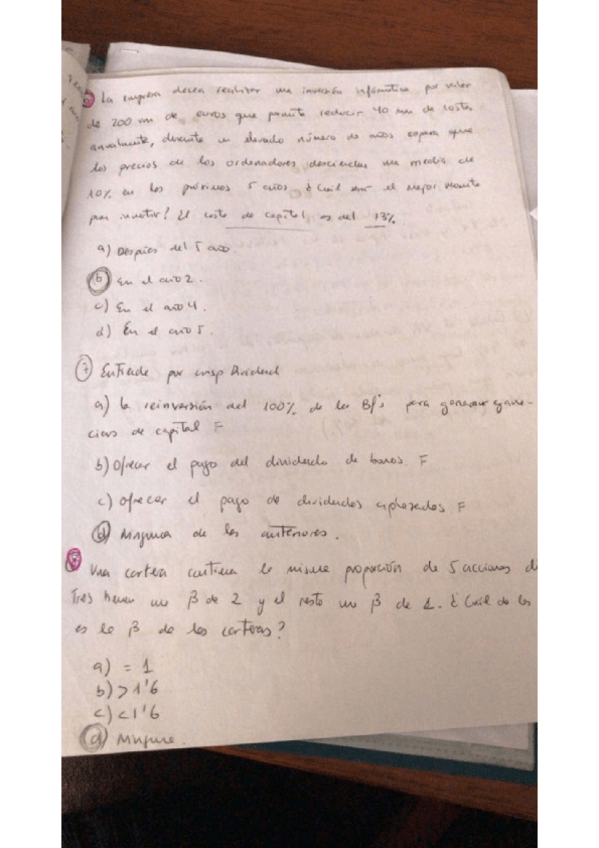 La empresa desea realizar una inversión informática por valor
de 200 mm de euros que permite reducir 40 mm de costes
anualmente, durante un elevado número de años espera que
los precios de los ordenadores desciendan una media de
10% en los próximos 5 años ¿Cuál será el mejor momento
para invertir? El coste de capital es del 13%
a) Después del 5 año.
b) En el año 2.
c) En el año 4.
d) En el año 5.
7) Entiende por Dividend
a) la reinversión del 100% de los Bf's para generar ganan-
cias de capital F
b) Ofrecer el pago del dividendo de bonos F
c) Ofrecer el pago de dividendos aplazados F
d) Ninguna de las anteriores.
Una cartera contiene la misma proporción de 5 acciones d
Tres tienen un β de 2 y el resto un β de 1. ¿Cuál de las
es la β de las carteras?
a) = 1
b) > 1'6
c) < 1'6
d) Ninguna.